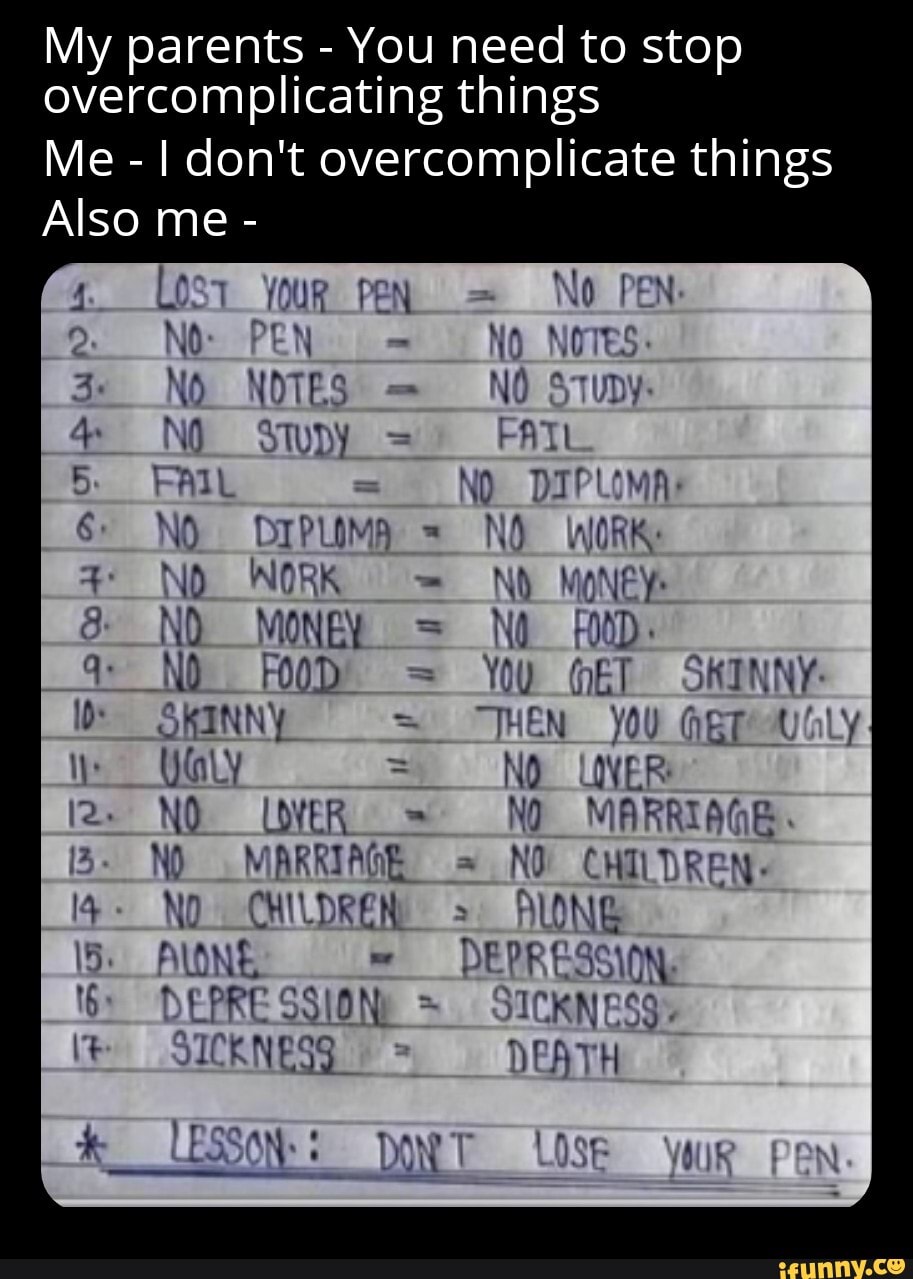 My parents - You need to stop
overcomplicating things
Me - I don't overcomplicate things
Also me -
1. LOST YOUR PEN = NO PEN.
2. NO. PEN = NO NOTES.
3. NO NOTES = NO STUDY.
4. NO STUDY = FAIL
5. FAIL = NO DIPLOMA.
6. NO DIPLOMA = NO WORK.
7. NO WORK = NO MONEY.
8. NO MONEY = NO FOOD.
9. NO FOOD = YOU GET SKINNY.
10. SKINNY = THEN YOU GET UGLY.
11. UGLY = NO LOVER.
12. NO LOVER = NO MARRIAGE.
13. NO MARRIAGE = NO CHILDREN.
14. NO CHILDREN = ALONE
15. ALONE = DEPRESSION.
16. DEPRESSION = SICKNESS.
17. SICKNESS = DEATH
* LESSON.: DON'T LOSE YOUR PEN.
ifunny.co